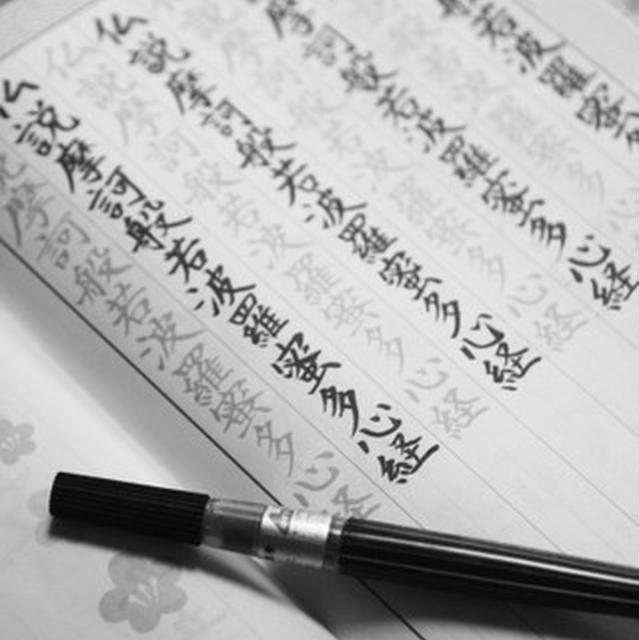 般若波羅蜜
羅蜜多
摩訶般若波羅蜜多心経
説摩訶般若波羅蜜多心経
仏説摩訶般若波羅蜜多心経
仏説摩訶般若波羅蜜多心経
仏説摩訶般若波羅蜜多心経
説摩訶般若波羅蜜多心経